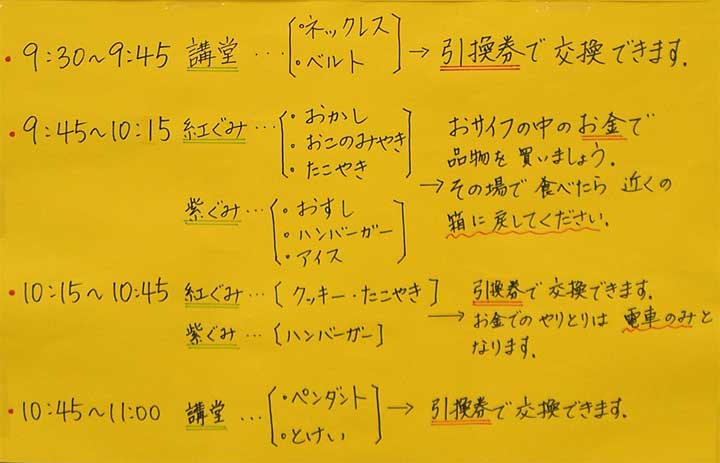 • 9:30～9:45 講堂 … ・ネックレス ・ベルト → 引換券で交換できます.
• 9:45～10:15 紅ぐみ … ・おかし ・おこのみやき ・たこやき
紫ぐみ … ・おすし ・ハンバーガー ・アイス
おサイフの中のお金で
品物を買いましょう.
→ その場で食べたら近くの
箱に戻してください.
• 10:15～10:45 紅ぐみ … [クッキー・たこやき]
紫ぐみ … [ハンバーガー]
引換券で交換できます.
→ お金でのやりとりは電車のみと
なります.
• 10:45～11:00 講堂 … ・ペンダント ・とけい → 引換券で交換できます.